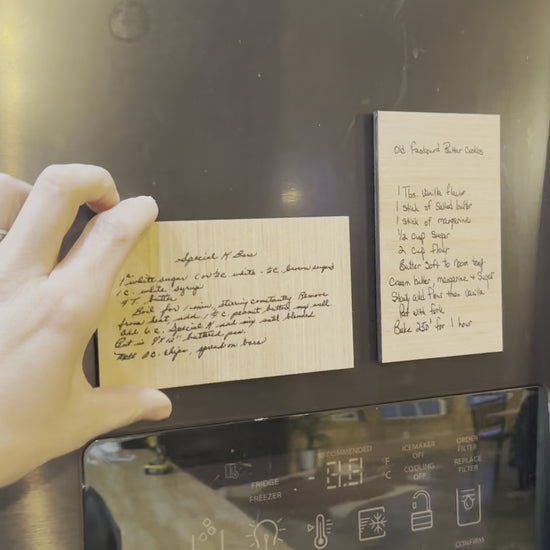 Special K Bars
1 c white sugar (or ½ c. white - ½ c. brown sugar)
1 c. white syrup
4 T. butter
Boil for 1 min, stirring constantly. Remove
from heat, add 1 ½ c peanut butter, mix well
Add 6 c. Special K and mix until blended.
Put in 9" x 12" buttered pan.
Melt B.C. chips, spread on bars
Old Fashioned Butter Cookies
1 Tbs. Vanilla flavor
1 stick of salted butter
1 stick of margarine
½ cup sugar
2 cup flour
Butter soft to room temp
Cream butter, margarine & sugar
Slowly add flour then vanilla
Pat with fork
Bake 250° for 1 hour
RECOMMENDED
FRIDGE
FREEZER
F
C
ICEMAKER
OFF
COOLING
OFF
ORDER
FILTER
REPLACE
FILTER
CONFIRM